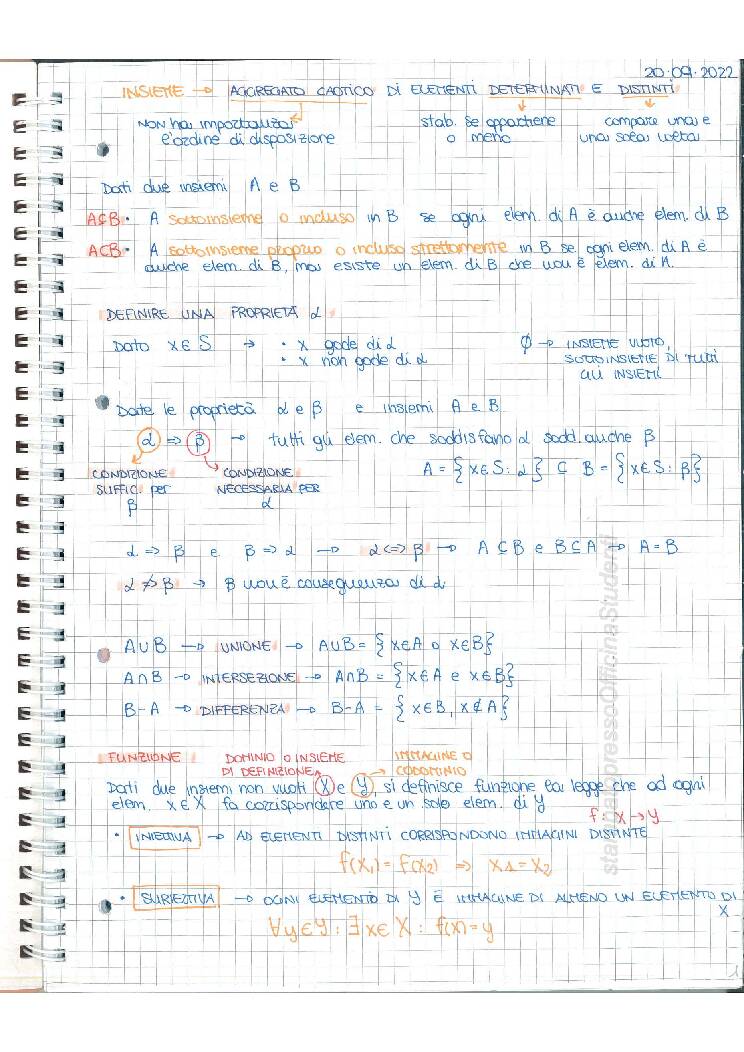 20.09.2022
INSIEME → AGGREGATO CAOTICO DI ELEMENTI DETERMINATI E DISTINTI
NON ha importanza l'ordine di disposizione
stab. se appartiene o meno
compare una e una sola volta
Dati due insiemi A e B
A⊆B • A sottoinsieme o incluso in B se ogni elem. di A è anche elem. di B
A⊂B • A sottoinsieme proprio o incluso strettamente in B se ogni elem. di A è
anche elem. di B, ma esiste un elem. di B che non è elem. di A.
DEFINIRE UNA PROPRIETÀ α
Dato x∈S → • x gode di α
• x non gode di α
∅ → INSIEME VUOTO, SOTTOINSIEME DI TUTTI GLI INSIEMI
Date le proprietà α e β e insiemi A e B
α ⇒ β → tutti gli elem. che soddisfano α sodd. anche β
A = {x∈S : α} ⊆ B = {x∈S : β}
CONDIZIONE SUFFIC. per β
CONDIZIONE NECESSARIA PER α
α ⇒ β e β ⇒ α → α ⇔ β → A⊆B e B⊆A → A=B
α ⇏ β → β non è conseguenza di α
A∪B → UNIONE → A∪B = {x∈A o x∈B}
A∩B → INTERSEZIONE → A∩B = {x∈A e x∈B}
B-A → DIFFERENZA → B-A = {x∈B, x∉A}
FUNZIONE
DOMINIO O INSIEME DI DEFINIZIONE
IMMAGINE O CODOMINIO
Dati due insiemi non vuoti X e Y, si definisce funzione la legge che ad ogni
elem. x∈X fa corrispondere uno e un solo elem. di Y
f: X→Y
• INIETTIVA → AD ELEMENTI DISTINTI CORRISPONDONO IMMAGINI DISTINTE
f(x₁) = f(x₂) ⇒ x₁ = x₂
• SURIETTIVA → OGNI ELEMENTO DI Y È IMMAGINE DI ALMENO UN ELEMENTO DI X
∀y∈Y : ∃x∈X : f(x)=y
1
stampatopressoOfficinaStudenti